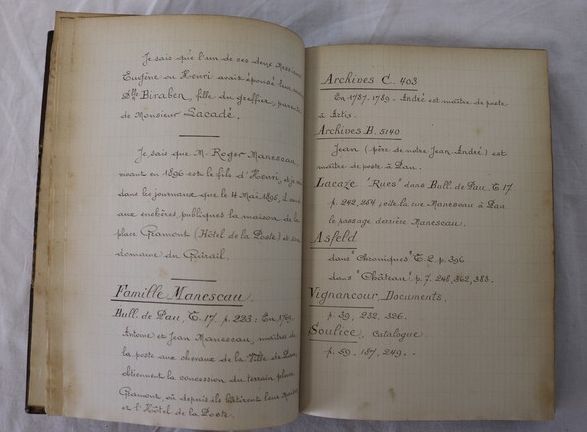 Je sais que l'un de ces deux Messieurs
Eugène ou Henri avait épousé
Dlle Biraben, fille du greffier,
de Monsieur Lacadé.
Je sais que M. Roger Manescau,
vivant en 1896 est le fils d'Henri, et je
dans les journaux que le 4 Mai 1896,
aux enchères, publiques la maison de la
place Gramont (Hôtel de la Poste) et
domaine du Guirail.
Famille Manescau.
Bull. de Pau, T. 17. p. 223 : En 1769
Antoine et Jean Manescau, maîtres de
la poste aux chevaux de la Ville de Pau
obtiennent la concession du terrain place
Gramont, où depuis ils bâtirent leur
et l'Hôtel de la Poste.
Archives C. 403
En 1787-1789. André est maître de poste
à Artix.
Archives B. 5140
Jean (père de notre Jean-André) est
maître de poste à Pau.
Lacaze "Rues" dans Bull. de Pau. T. 17
p. 242, 254 ; cite la rue Manescau à Pau
le passage derrière Manescau.
Asfeld
dans "Chroniques" T. 2. p. 396
dans "Château" p. 7. 248, 362, 383.
Vignancour, Documents.
p. 39, 232, 326.
Soulice, Catalogue
p. 59. 187, 249.